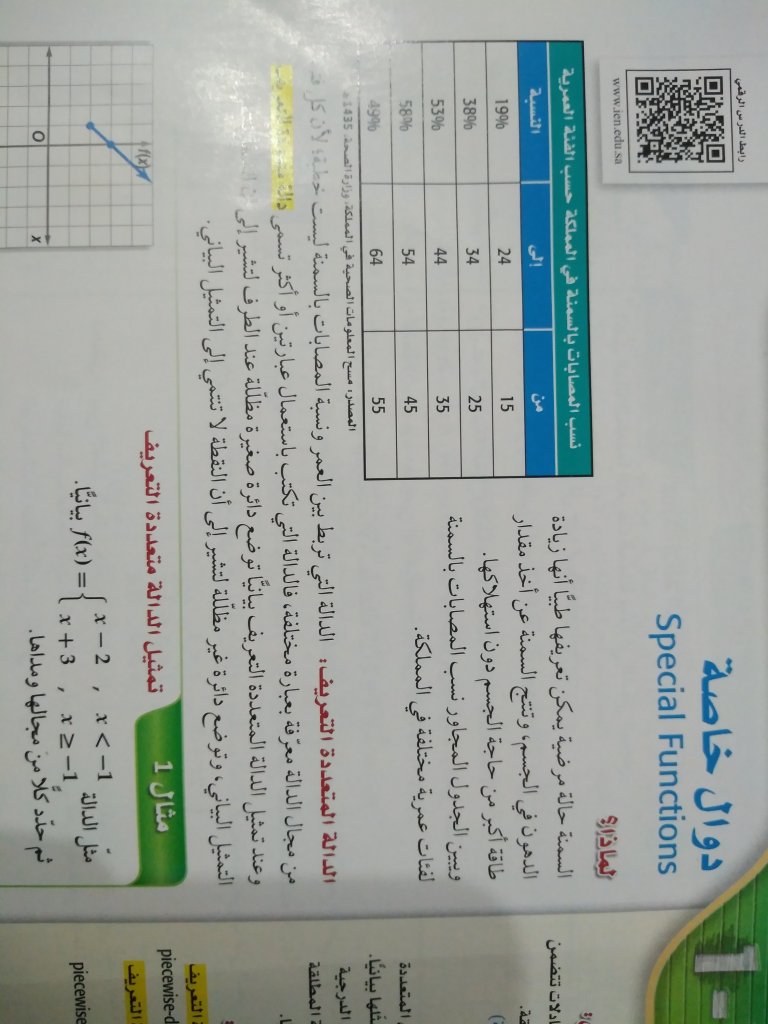 دوال خاصة
Special Functions
لماذا؟
السمنة حالة مرضية يمكن تعريفها طبيًّا أنها زيادة
الدهون في الجسم، وتنتج السمنة عن أخذ مقدار
طاقة أكبر من حاجة الجسم دون استهلاكها.
ويبين الجدول المجاور نسب المصابات بالسمنة
لفئات عمرية مختلفة في المملكة.
رابط الدرس الرقمي
www.ien.edu.sa
نسب المصابات بالسمنة في المملكة حسب الفئة العمرية
من إلى النسبة
15 24 19%
25 34 38%
35 44 53%
45 54 58%
55 64 49%
المصدر: مسح المعلومات الصحية في المملكة. وزارة الصحة. 1435هـ
الدالة المتعددة التعريف: الدالة التي تربط بين العمر ونسبة المصابات بالسمنة ليست خطية؛ لأن كل
من مجال الدالة معرّفة بعبارة مختلفة، فالدالة التي تكتب باستعمال عبارتين أو أكثر تسمى دالة متعددة التعريف
وعند تمثيل الدالة المتعددة التعريف بيانيًّا توضع دائرة صغيرة مظلّلة عند الطرف لتشير إلى أن
التمثيل البياني، وتوضع دائرة غير مظلّلة لتشير إلى أن النقطة لا تنتمي إلى التمثيل البياني.
مثال 1
تمثيل الدالة متعددة التعريف
مثّل الدالة f(x) = { x − 2 , x < −1
x + 3 , x ≥ −1 بيانيًّا.
ثم حدّد كلًّا من مجالها ومداها.
f(x)
O
x
1-
ادلات تتضمن
المتعددة
مثلها بيانيًّا.
الدرجية
المطلقة
التعريف
piecewise-d
التعريف
piecewise